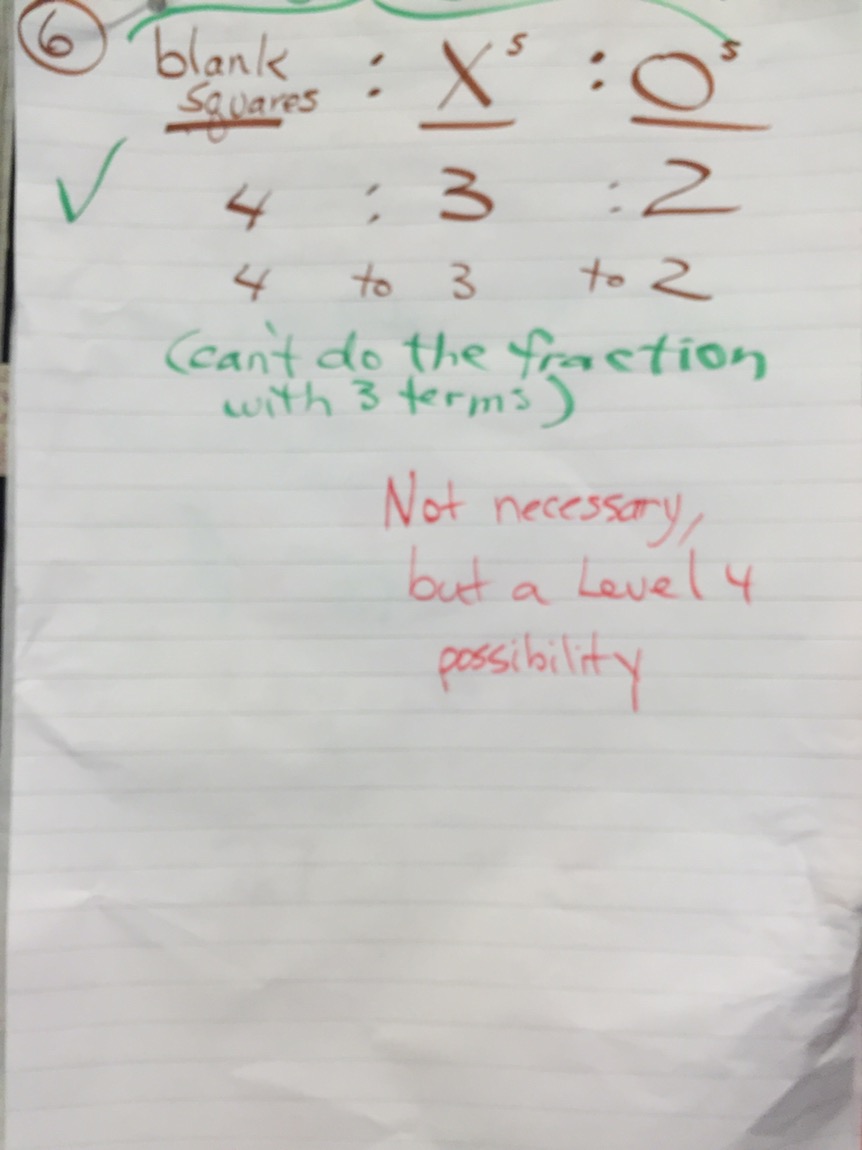 6 blank squares : Xs : Os
✓ 4 : 3 : 2
4 to 3 to 2
(can't do the fraction
with 3 terms)
Not necessary,
but a Level 4
possibility